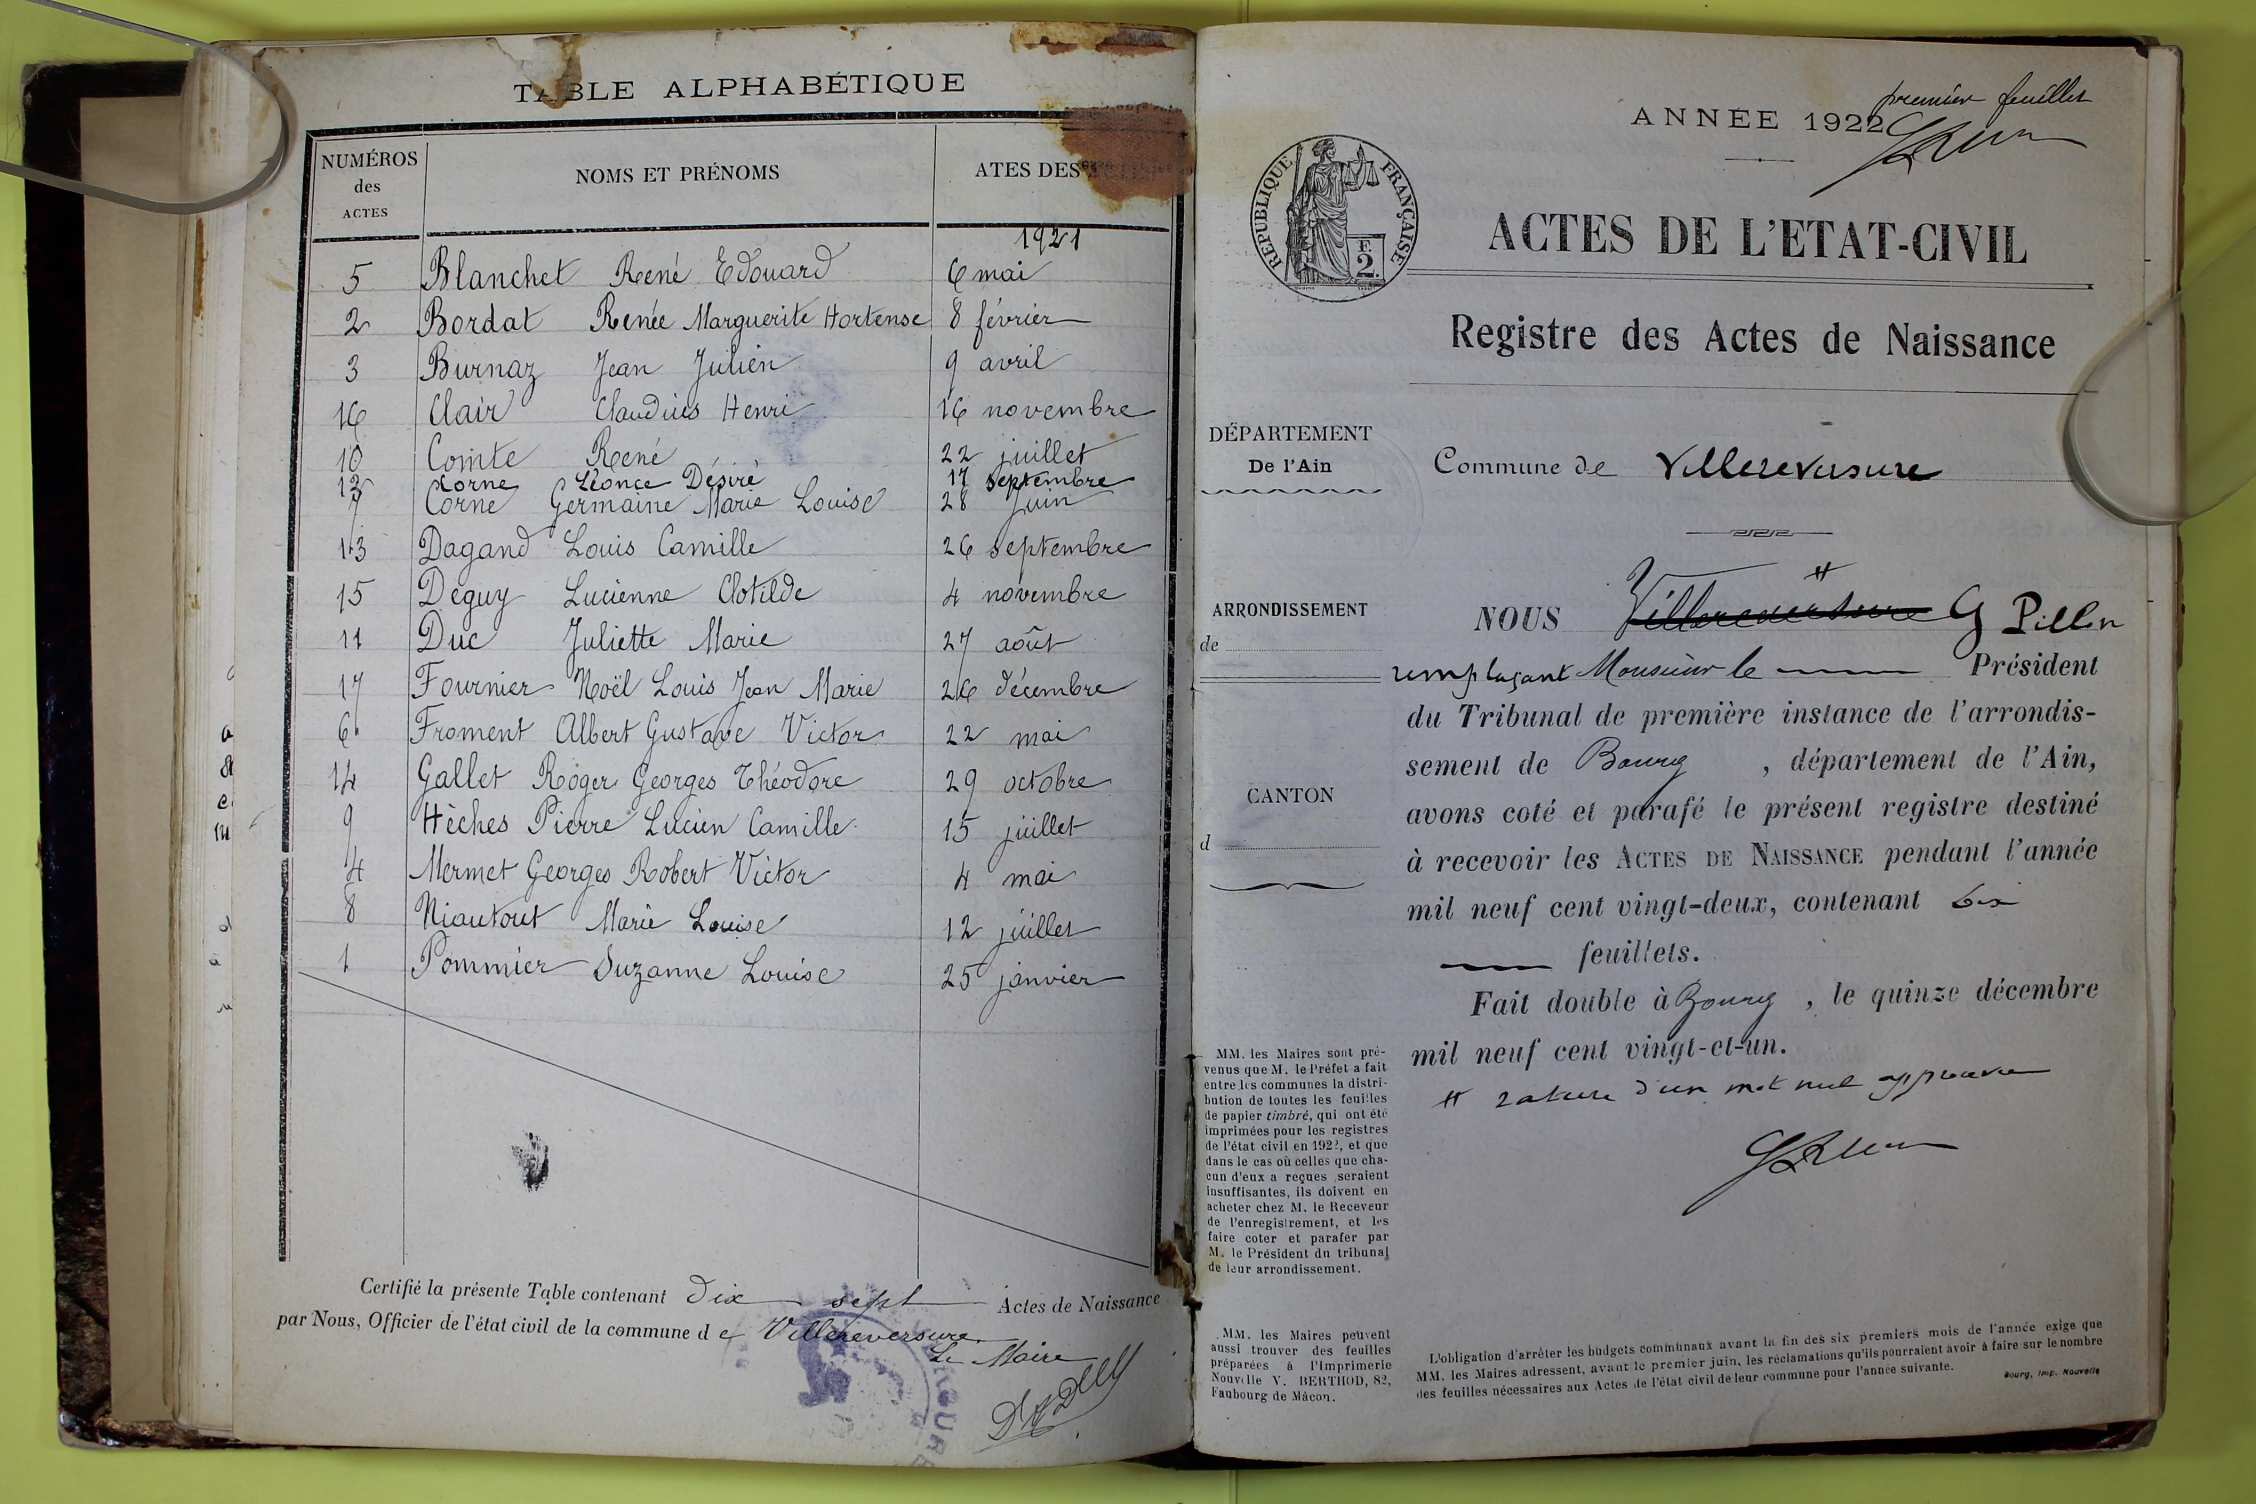 TABLE ALPHABÉTIQUE
NUMÉROS des ACTES
NOMS ET PRÉNOMS
ATES DES
1921
5 Blanchet René Edouard 6 mai
2 Bordat Renée Marguerite Hortense 8 février
3 Burnaz Jean Julien 9 avril
16 Clair Claudius Henri 16 novembre
10 Comte René 22 juillet
12 Corne Léonce Désiré 17 septembre
7 Corne Germaine Marie Louise 28 Juin
13 Dagand Louis Camille 26 septembre
15 Deguy Lucienne Clotilde 4 novembre
11 Duc Juliette Marie 27 août
17 Fournier Noël Louis Jean Marie 26 décembre
6 Froment Albert Gustave Victor 22 mai
14 Gallet Roger Georges Théodore 29 octobre
9 Hèches Pierre Lucien Camille 15 juillet
4 Mermet Georges Robert Victor 4 mai
8 Niautout Marie Louise 12 juillet
1 Pommier Suzanne Louise 25 janvier
Certifié la présente Table contenant dix sept Actes de Naissance
par Nous, Officier de l'état civil de la commune d e Villereversure
Le Maire
premier feuillet
ANNÉE 1922
RÉPUBLIQUE FRANÇAISE
F.
2.
ACTES DE L'ETAT-CIVIL
Registre des Actes de Naissance
DÉPARTEMENT
De l'Ain
Commune de Villereversure
ARRONDISSEMENT
de
CANTON
d
NOUS Villereversure G Pillon
remplaçant Monsieur le Président
du Tribunal de première instance de l'arrondis-
sement de Bourg , département de l'Ain,
avons coté et parafé le présent registre destiné
à recevoir les ACTES DE NAISSANCE pendant l'année
mil neuf cent vingt-deux, contenant six
feuillets.
Fait double à Bourg , le quinze décembre
mil neuf cent vingt-et-un.
# rature d'un mot nul approuvée
MM. les Maires sont pré-
venus que M. le Préfet a fait
entre les communes la distri-
bution de toutes les feuilles
de papier timbré, qui ont été
imprimées pour les registres
de l'état civil en 1922, et que
dans le cas où celles que cha-
cun d'eux a reçues seraient
insuffisantes, ils doivent en
acheter chez M. le Receveur
de l'enregistrement, et les
faire coter et parafer par
M. le Président du tribunal
de leur arrondissement.
MM. les Maires peuvent
aussi trouver des feuilles
préparées à l'Imprimerie
Nouvelle V. BERTHOD, 82,
Faubourg de Mâcon.
L'obligation d'arrêter les budgets communaux avant la fin des six premiers mois de l'année exige que
MM. les Maires adressent, avant le premier juin, les réclamations qu'ils pourraient avoir à faire sur le nombre
des feuilles nécessaires aux Actes de l'état civil de leur commune pour l'année suivante.
Bourg, Imp. Nouvelle